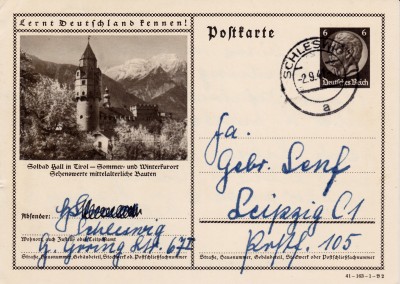 Lernt Deutschland kennen!
Postkarte
6 6
Deutsches Reich
SCHLESWIG
-2.9.4
a
Solbad Hall in Tirol – Sommer- und Winterkurort
Sehenswerte mittelalterliche Bauten
Fa.
Gebr. Senf
Leipzig C1
Postfl. 105
Absender:
Schleswig
Wohnort, auch Zustell- oder Leitpostamt
H. Göring Str. 67
Straße, Hausnummer, Gebäudeteil, Stockwerk oder Postschließfachnummer
Straße, Hausnummer, Gebäudeteil, Stockwerk oder Postschließfachnummer
41-163-1-B2